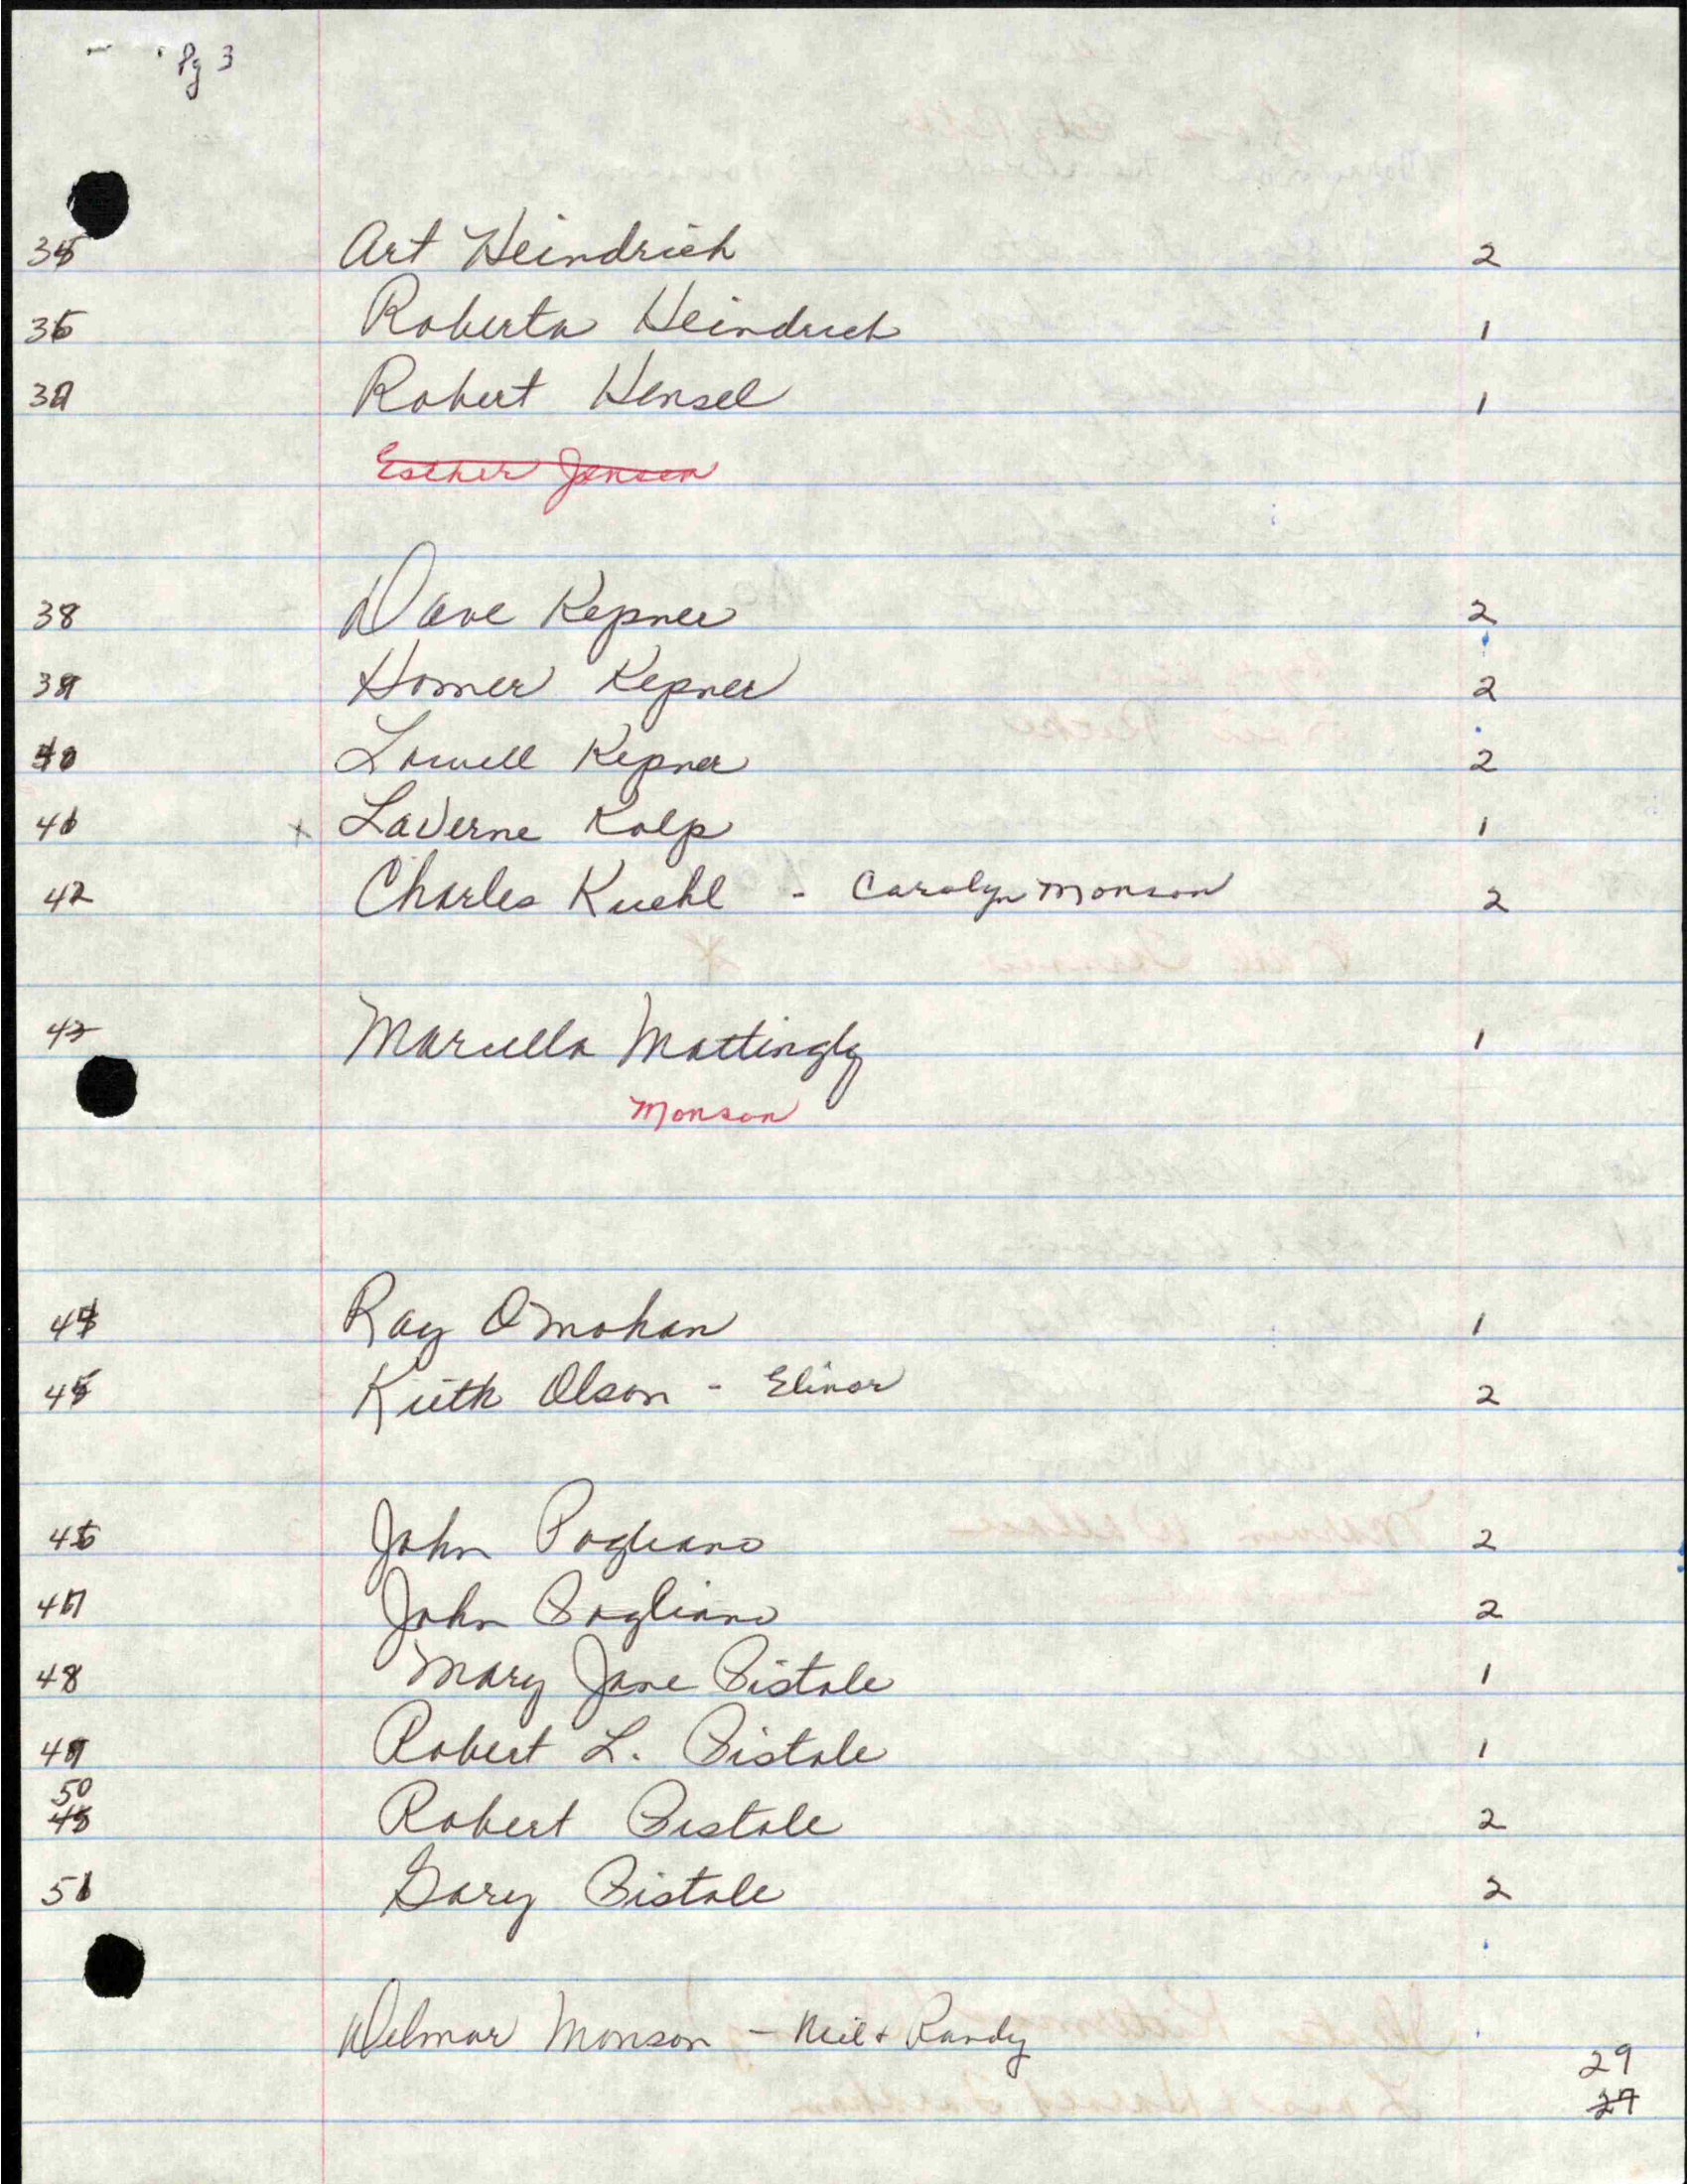 Pg 3
35 Art Heindrich 2
36 Roberta Heindrich 1
37 Robert Hensel 1
Esther Jensen
38 Dave Kepner 2
39 Homer Kepner 2
40 Lowell Kepner 2
41 x LaVerne Kolp 1
42 Charles Kuehl - Carolyn Monson 2
43 Marcella Mattingly 1
Monson
44 Ray Omohan 1
45 Keith Olson - Elinor 2
46 John Pogliano 2
47 John Pogliano 2
48 Mary Jane Pistole 1
49 Robert L. Pistole 1
50
48 Robert Pistole 2
51 Gary Pistole 2
Delmar Monson - Neil + Randy
29
27